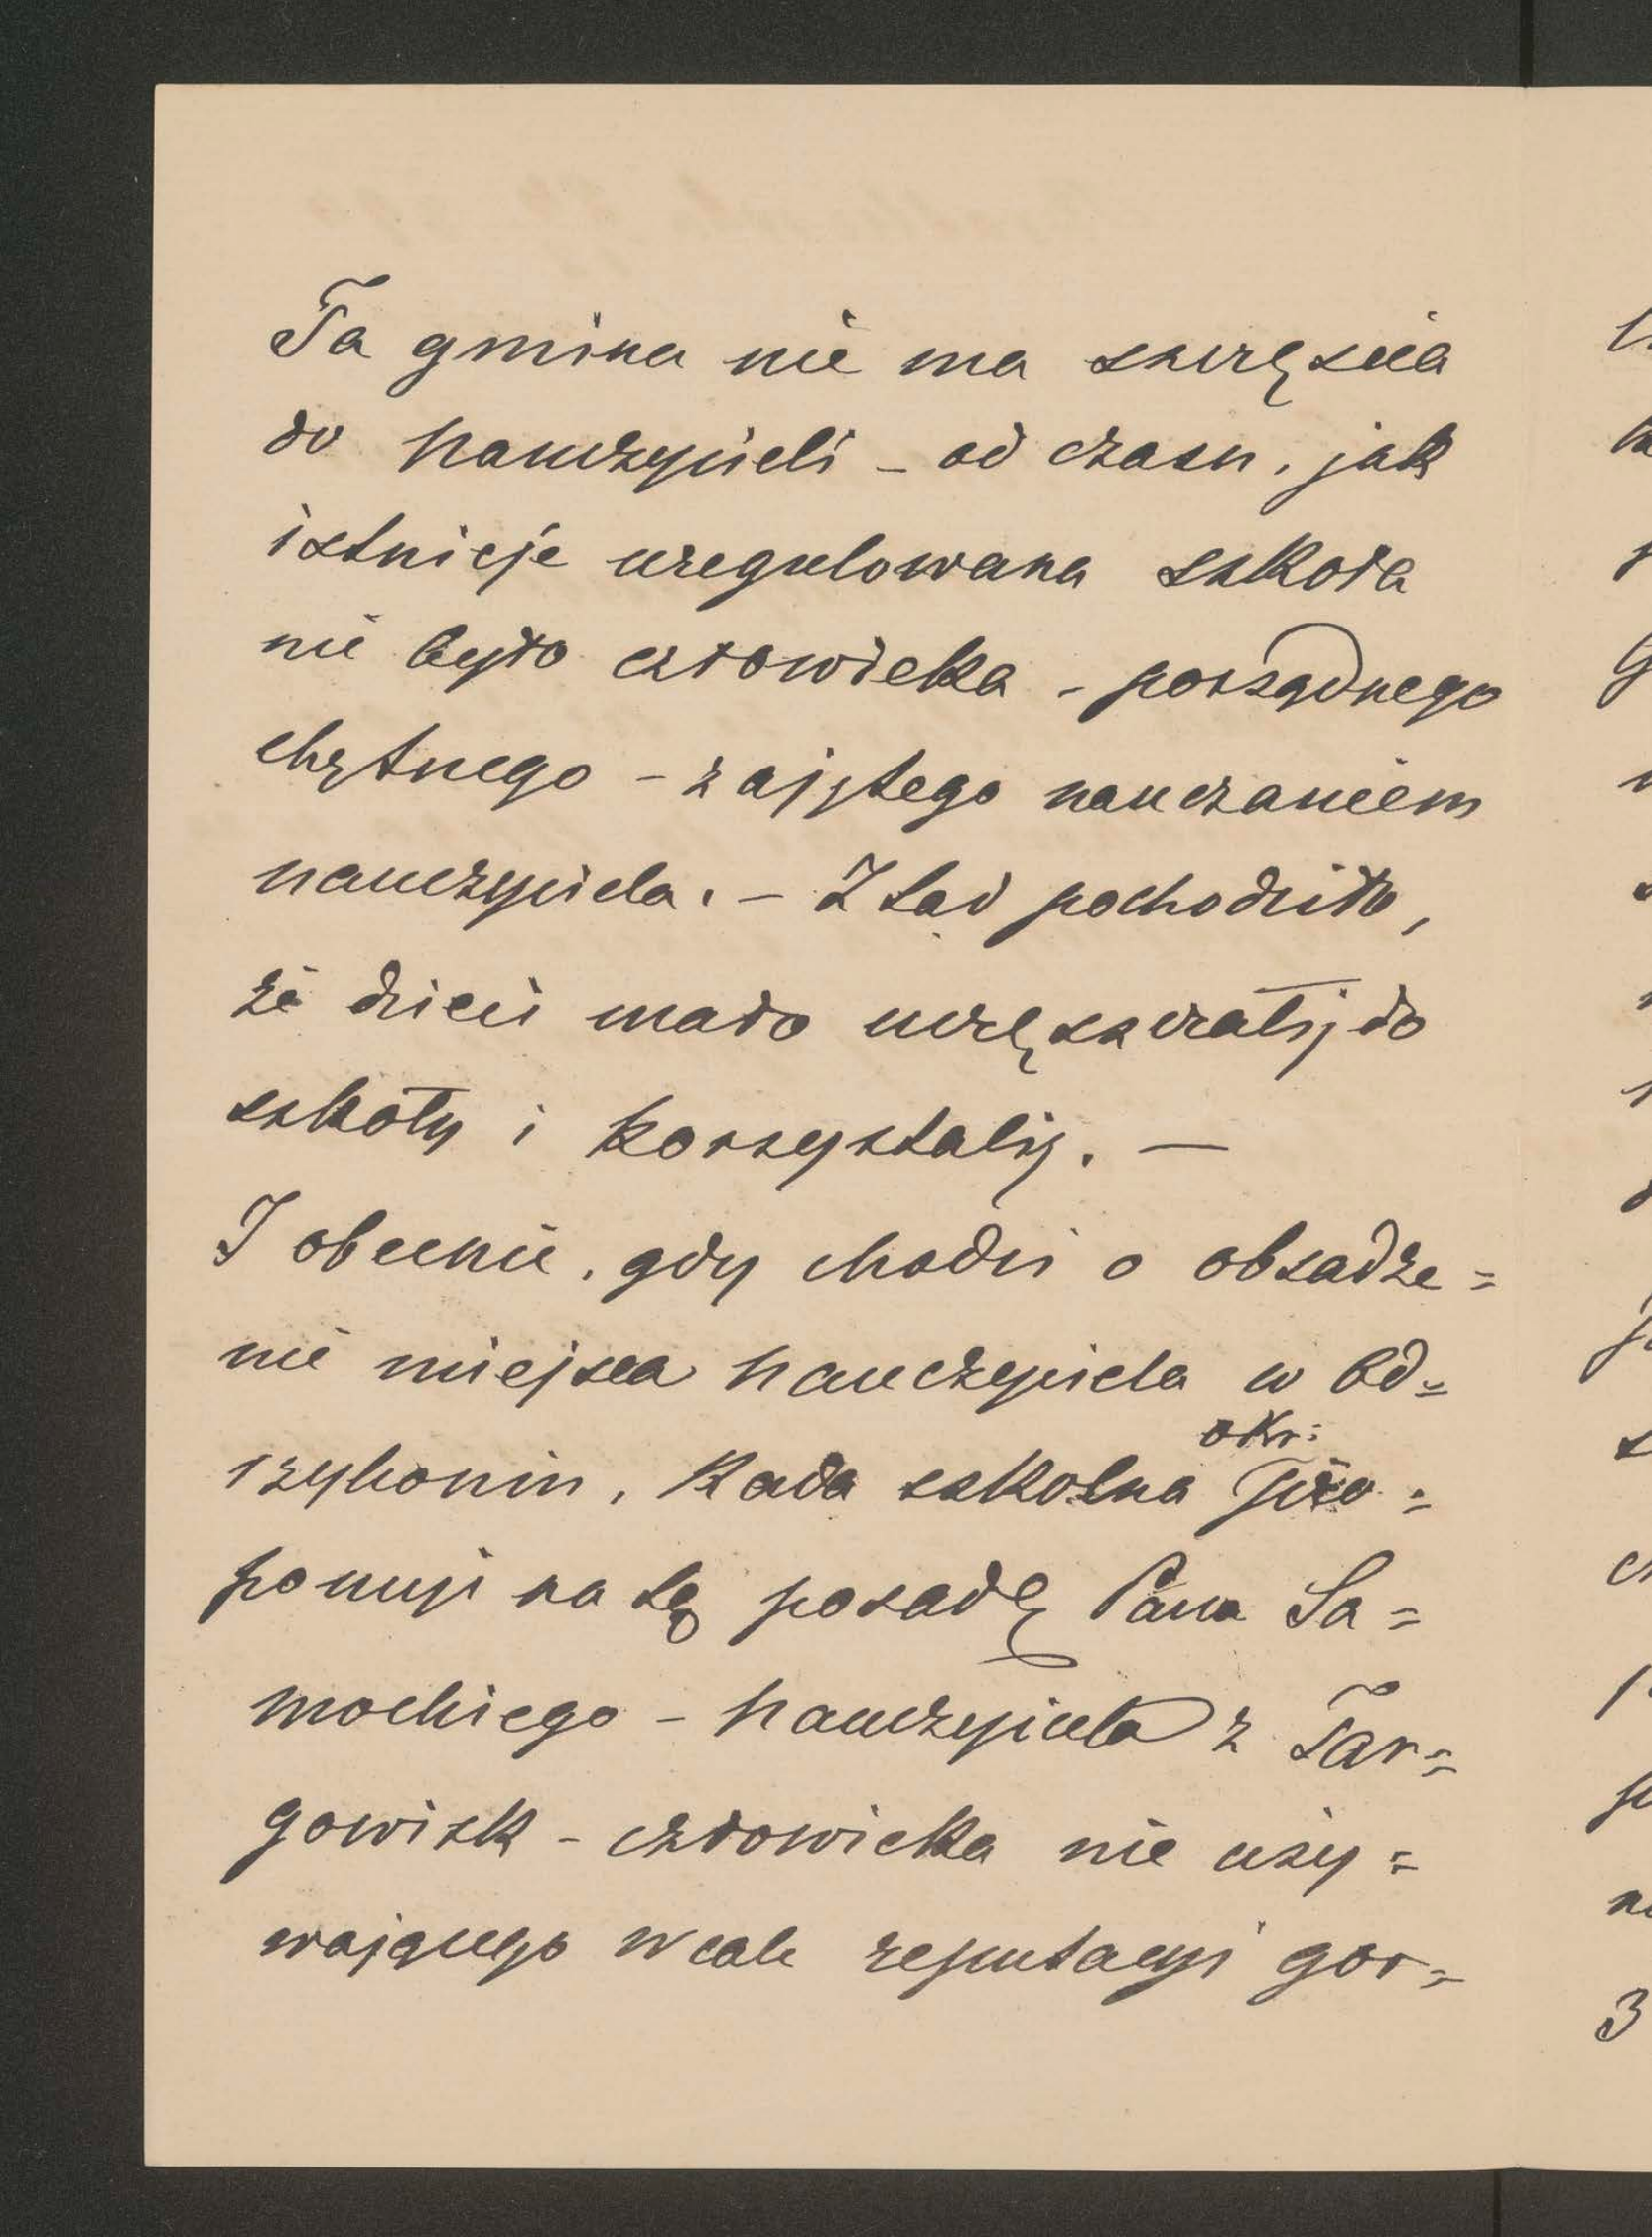 Ta gmina nie ma szczęścia
do nauczycieli – od czasu, jak
istnieje uregulowana szkoła
nie było człowieka – porządnego
chętnego – zajętego nauczaniem
nauczyciela. – Ztąd pochodziło,
że dzieci mało uczęszczały do
szkoły i korzystały. —
I obecnie, gdy chodzi o obsadze=
nie miejsca nauczyciela w Od=
rzykoniu, Rada szkolna okr: pro=
ponuje na tę posadę Pana Sa=
mockiego – nauczyciela z Tar=
gowisk – człowieka nie uży=
wającego wcale reputacyi gor=